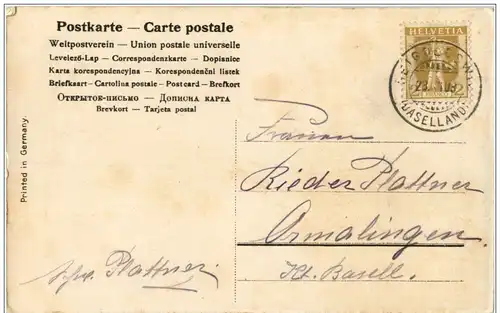 Postkarte — Carte postale
Weltpostverein — Union postale universelle
Levelező-Lap — Correspondenzkarte — Dopisnice
Karta korespondencyjna — Korespondenční lístek
Briefkaart — Cartolina postale — Postcard — Brefkort
Открытое-письмо — Дописна карта
Brevkort — Tarjeta postal
HELVETIA
BASELLAND
Printed in Germany.
Frauen
Rieder Plattner
Ormalingen.
Kt. Basell.
Plattner.